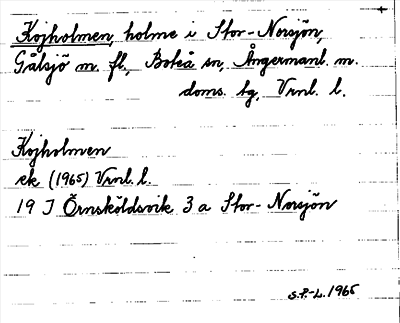 Kojholmen, holme i Stor-Norsjön,
Gålsjö m. fl., Boteå sn, Ångermanl. m.
doms. tg, Vrnl. l.
Kojholmen
ek (1965) Vrnl. l.
19 J Örnsköldsvik 3 a Stor-Norsjön
S.P.-L. 1965